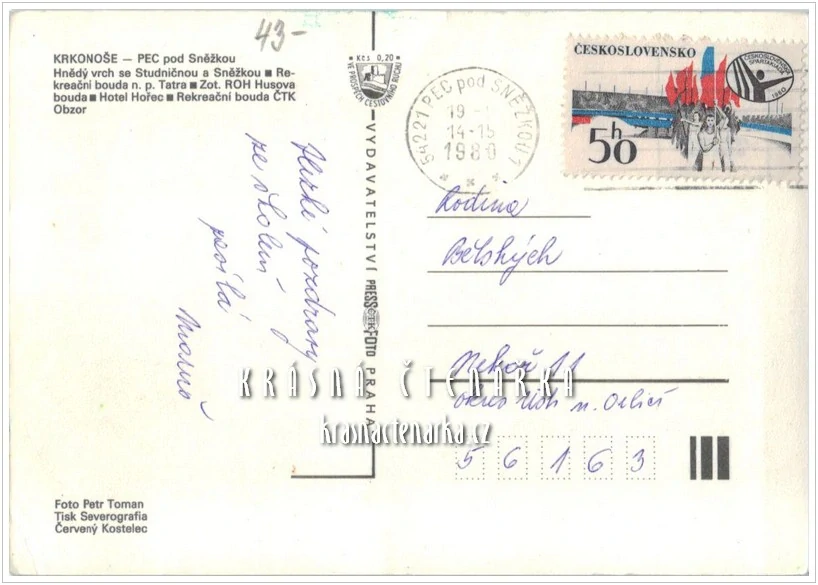 43-
KRKONOŠE — PEC pod Sněžkou
Hnědý vrch se Studničnou a Sněžkou ■ Re-
kreační bouda n. p. Tatra ■ Zot. ROH Husova
bouda ■ Hotel Hořec ■ Rekreační bouda ČTK
Obzor
Kčs 0,20
VE PROSPĚCH CESTOVNÍHO RUCHU
VYDAVATELSTVÍ PRESSFOTO PRAHA
ČTK
54221 PEC pod SNĚŽKOU 1
19
14-15
1980
ČESKOSLOVENSKO
ČESKOSLOVENSKÁ SPARTAKIÁDA 1980
50 h
Hezké pozdravy
ze školení
posílá
Rodina
Bělských
Nekoř 11
okres Ústí n. Orlicí
56163
KRÁSNÁ ČTENÁŘKA
krasnactenarka.cz
Foto Petr Toman
Tisk Severografia
Červený Kostelec